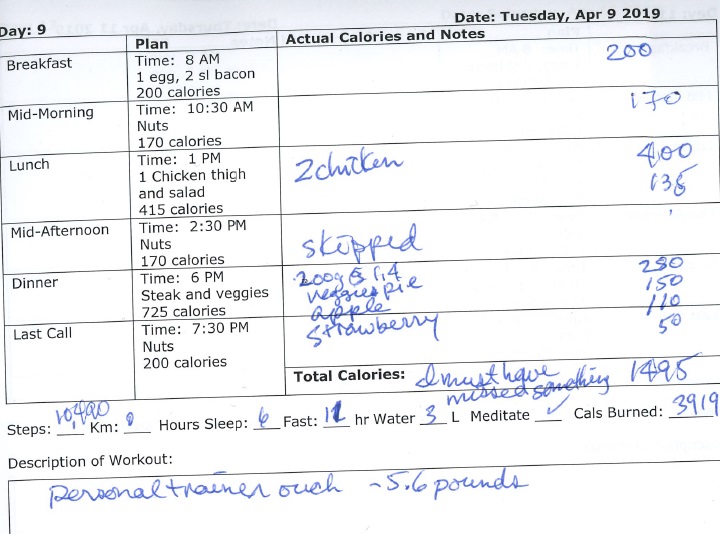 Date: Tuesday, Apr 9 2019
Day: 9
Plan
Actual Calories and Notes
Breakfast
Time: 8 AM
1 egg, 2 sl bacon
200 calories
200
Mid-Morning
Time: 10:30 AM
Nuts
170 calories
170
Lunch
Time: 1 PM
1 Chicken thigh
and salad
415 calories
2 chicken
400
135
Mid-Afternoon
Time: 2:30 PM
Nuts
170 calories
skipped
Dinner
Time: 6 PM
Steak and veggies
725 calories
200g @ 1.4 280
veggies pie 150
apple 110
Last Call
Time: 7:30 PM
Nuts
200 calories
strawberry 50
Total Calories: I must have missed something 1495
Steps: 10,490 Km: Hours Sleep: 6 Fast: hr Water 3 L Meditate ✓ Cals Burned: 3919
Description of Workout:
Personal trainer ouch -5.6 pounds